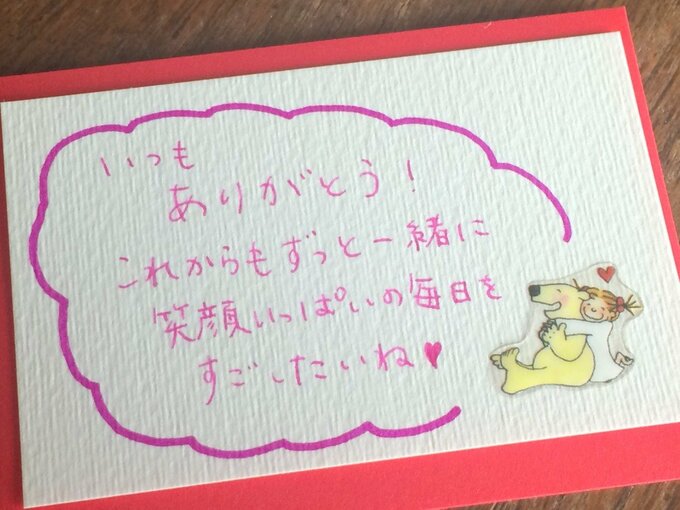 いつも
ありがとう!
これからもずっと一緒に
笑顔いっぱいの毎日を
すごしたいね♥